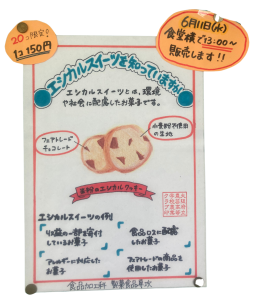 20コ限定!
1コ150円
6月11日(水)
食堂横で13:00~
販売します!!
エシカルスイーツを知っていますか!
エシカルスイーツとは、環境
や社会に配慮したお菓子です。
フェアトレード
チョコレート
小麦粉不使用
の生地
エシカルスイーツの例
収益の一部を寄付
しているお菓子
食品ロスに配慮
したお菓子
アレルギーに対応した
お菓子
フェアトレードの商品を
使用したお菓子
食品加工科